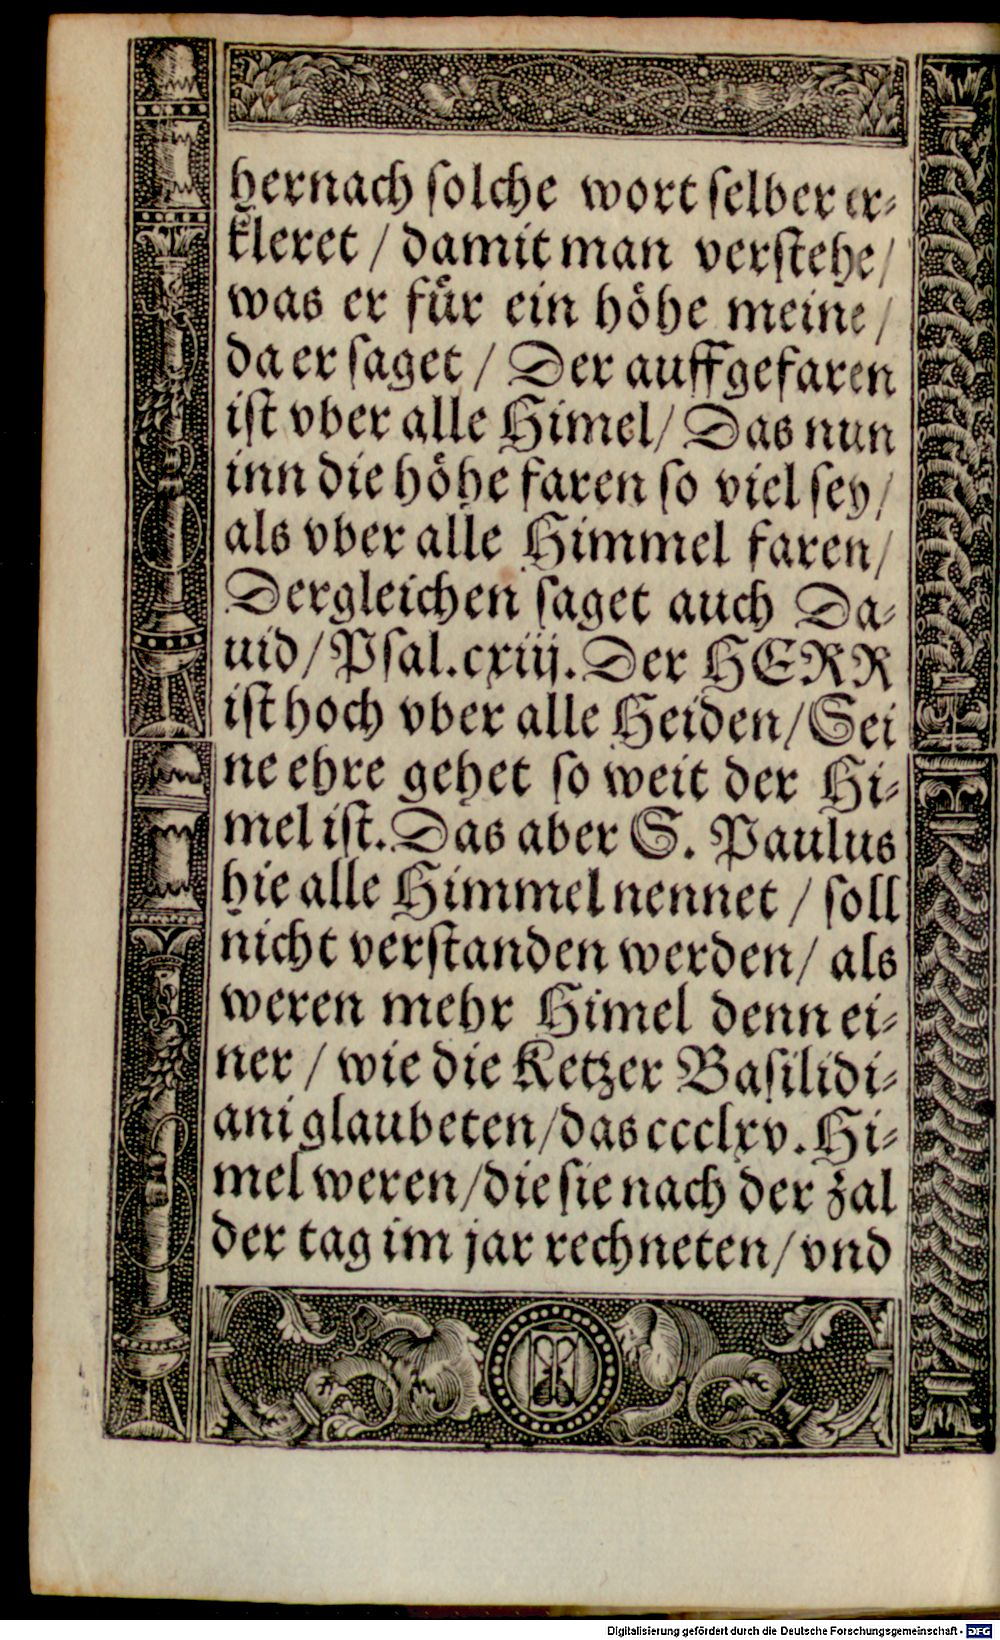 hernach ſolche wort ſelber er⸗
kleret / damit man verſtehe /
was er fuͤr ein hoͤhe meine /
da er ſaget / Der auffgefaren
iſt vber alle Himel / Das nun
inn die hoͤhe faren ſo viel ſey /
als vber alle Himmel faren /
Dergleichen ſaget auch Da⸗
uid / Pſal. cxiij. Der HERR
iſt hoch vber alle Heiden / Sei
ne ehre gehet ſo weit der Hi⸗
mel iſt. Das aber S. Paulus
hie alle Himmel nennet / ſoll
nicht verſtanden werden / als
weren mehr Himel denn ei⸗
ner / wie die Ketzer Baſilidi⸗
ani glaubeten / das ccclxv. Hi⸗
mel weren / die ſie nach der zal
der tag im jar rechneten / vnd
Digitalisierung gefördert durch die Deutsche Forschungsgemeinschaft - DFG